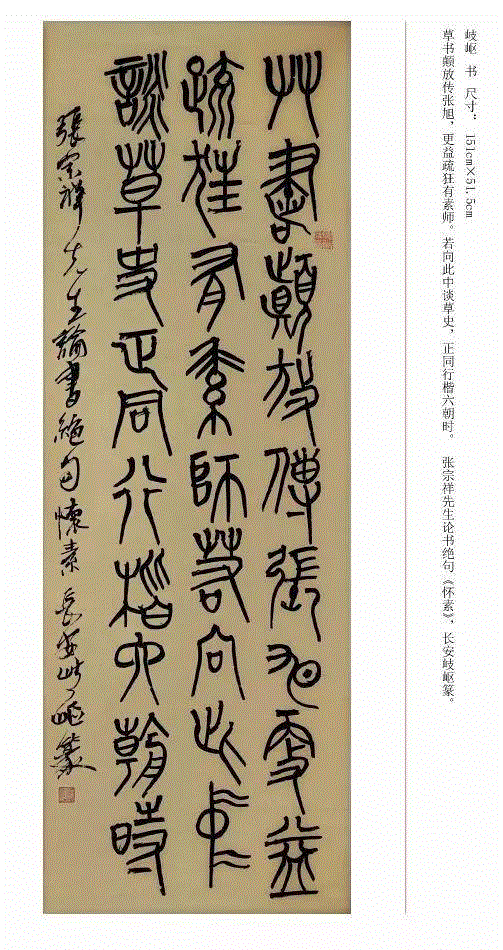 岐岖 书 尺寸： 151cm×51.5cm
草书颠放传张旭，更益疏狂有素师。若向此中谈草史，正同行楷六朝时。 张宗祥先生论书绝句《怀素》，长安岐岖篆。
艸書顛放傳張旭更益
疏狂有素師若向此中
談草史正同行楷六朝時
張宗祥先生論書絕句懷素長安岐嶇篆